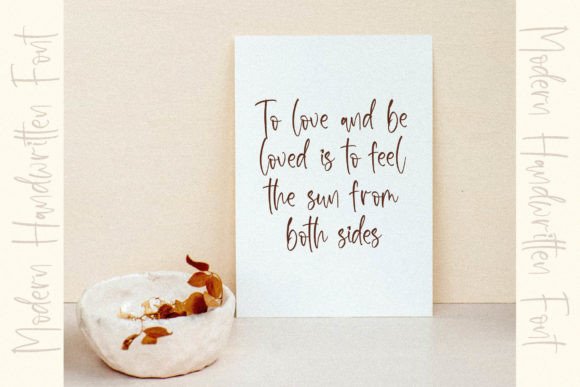 Modern Handwritten Font
To love and be
loved is to feel
the sun from
both sides
Modern Handwritten Font